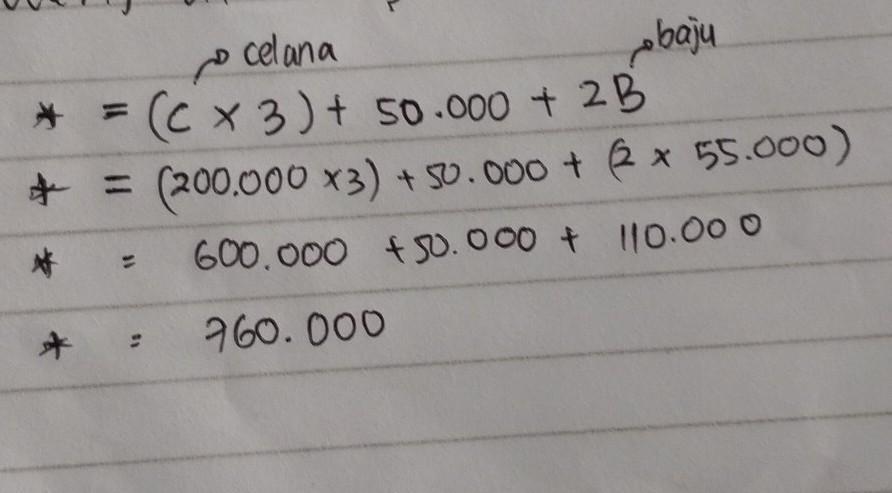 celana baju
* = (C × 3) + 50.000 + 2B
* = (200.000 × 3) + 50.000 + (2 × 55.000)
* = 600.000 + 50.000 + 110.000
* = 760.000